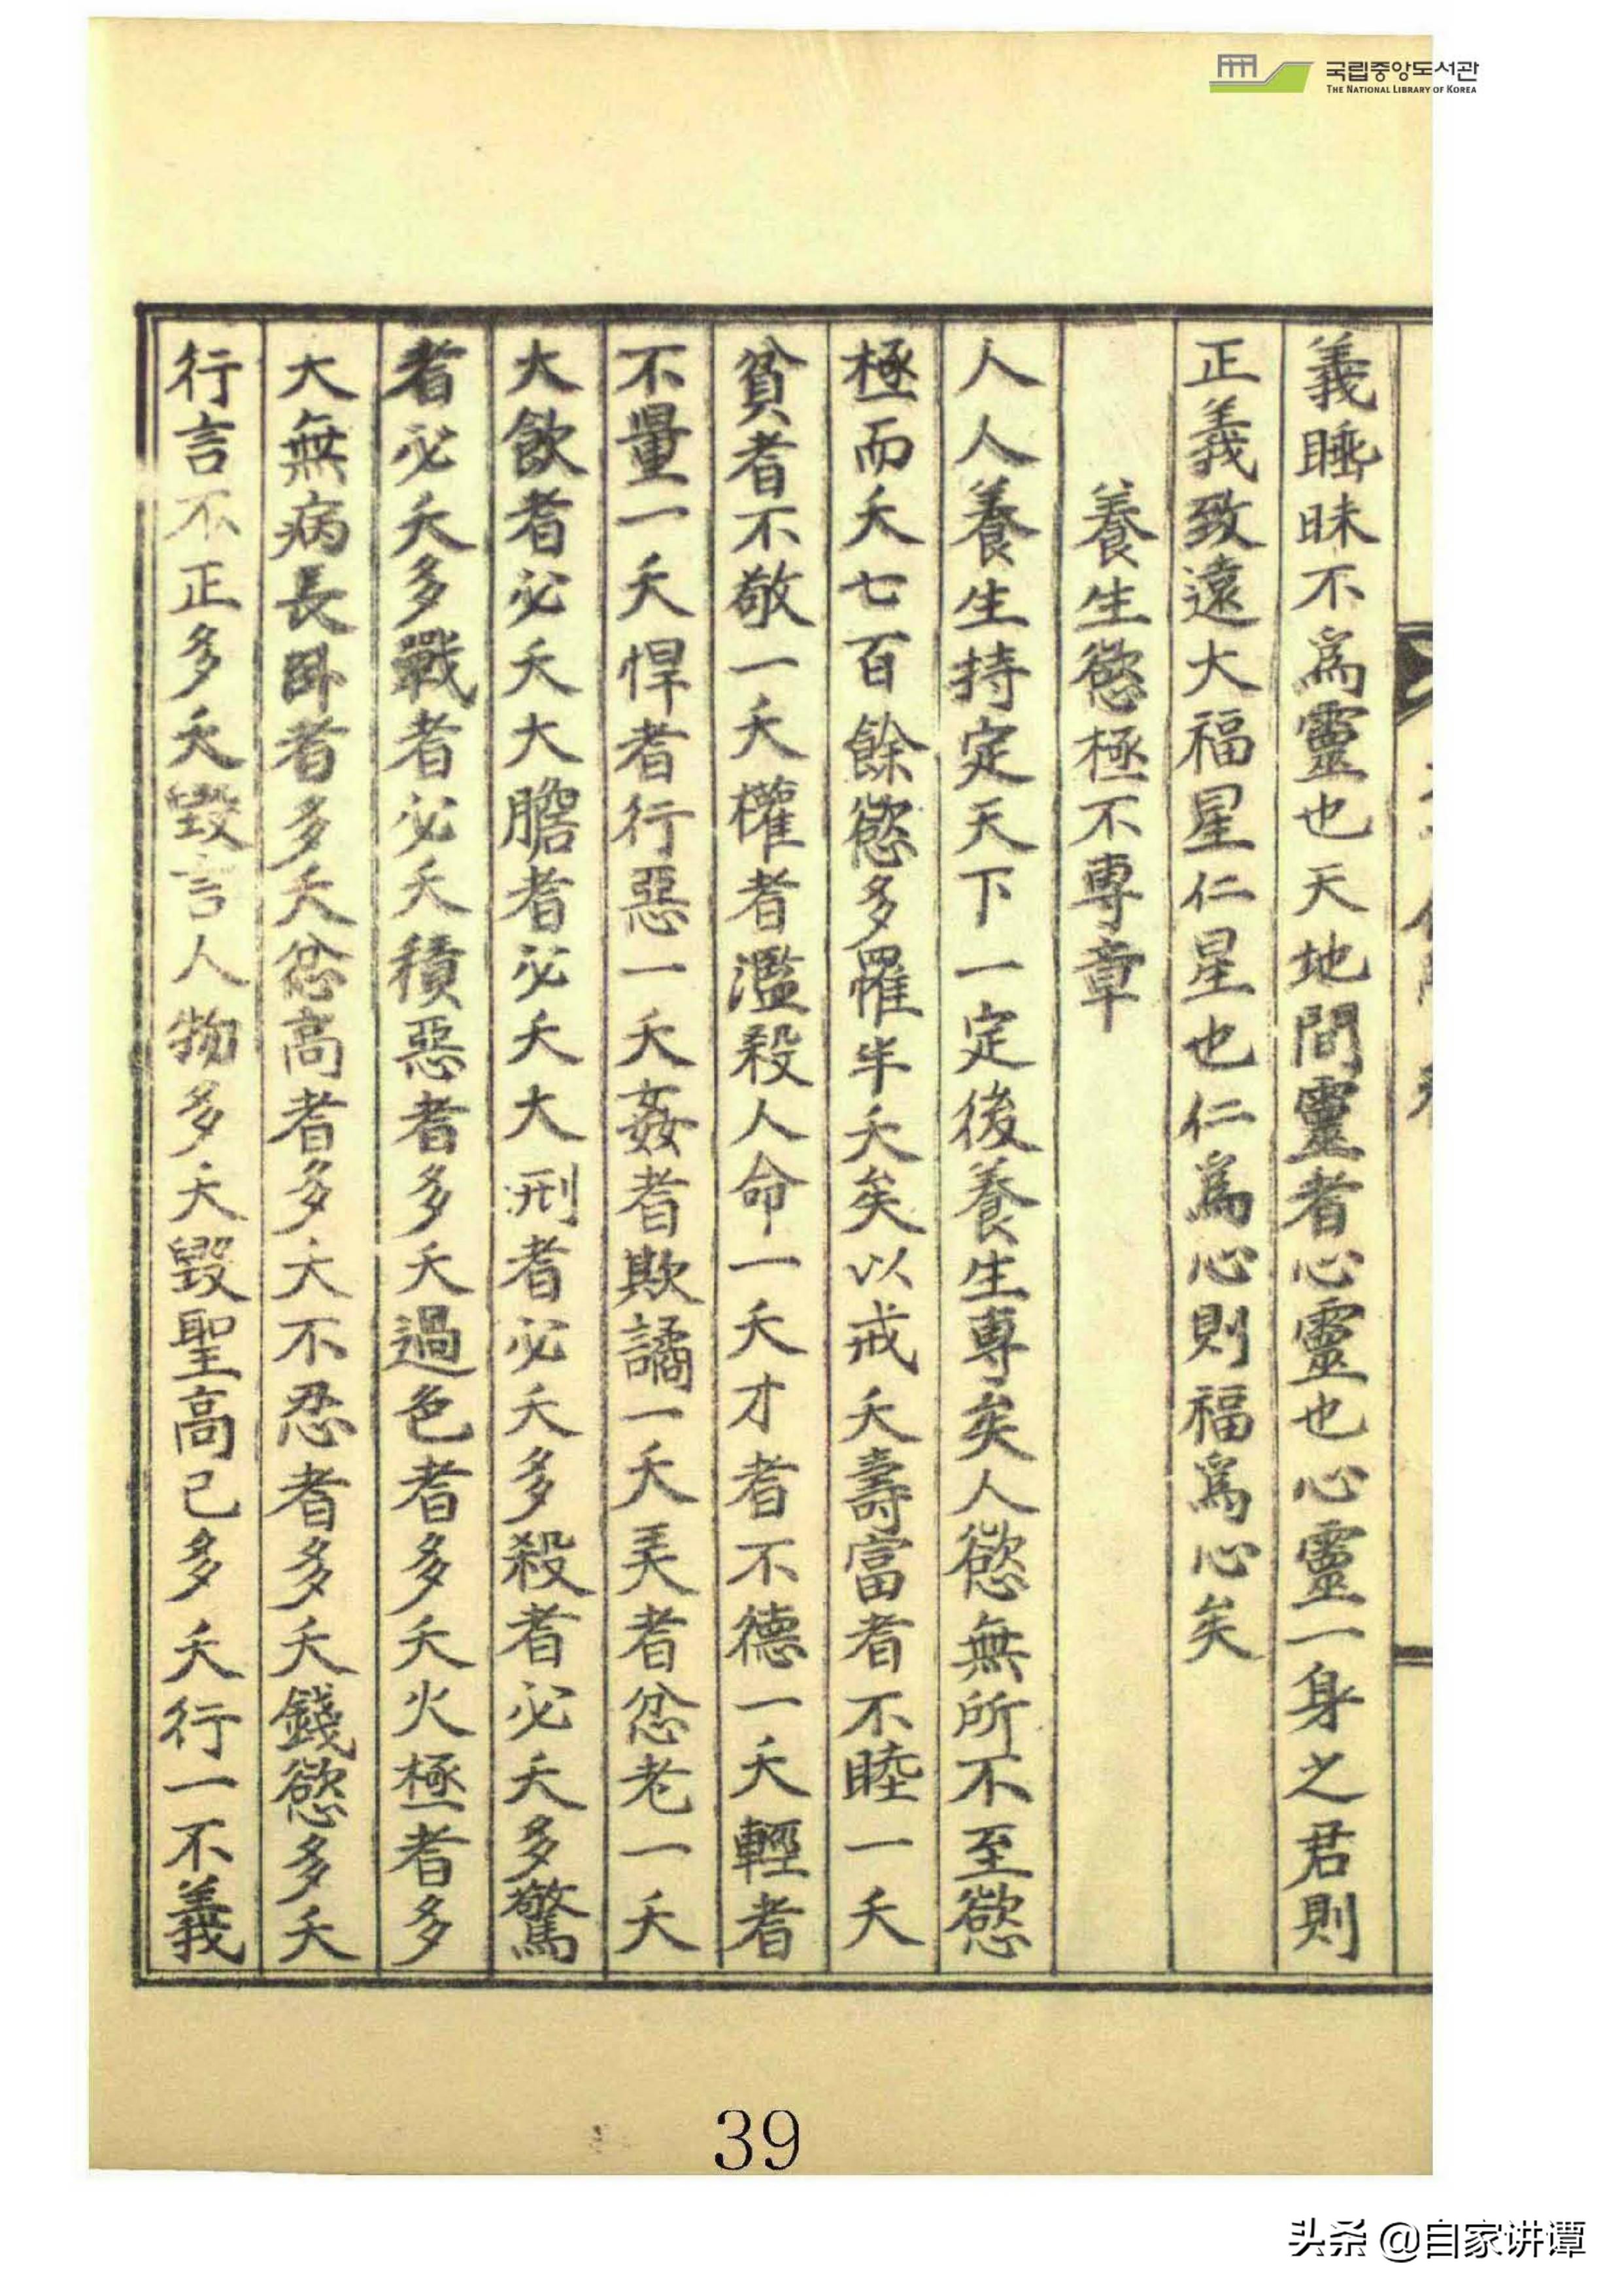 국립중앙도서관
THE NATIONAL LIBRARY OF KOREA
義睡昧不爲靈也天地間靈者心靈也心靈一身之君則
正義致遠大福星仁星也仁爲心則福爲心矣
養生慾極不專章
人人養生持定天下一定後養生專矣人慾無所不至慾
極而夭七百餘慾多罹半夭矣以戒夭壽富者不睦一夭
貧者不敬一夭權者濫殺人命一夭才者不德一夭輕者
不量一夭悍者行惡一夭姦者欺譎一夭美者忿老一夭
大飮者必夭大膽者必夭大刑者必夭多殺者必夭多驚
者必夭多戰者必夭積惡者多夭過色者多夭火極者多
夭無病長卧者多夭忿高者多夭不忍者多夭錢慾多夭
行言不正多夭毀言人物多夭毀聖高己多夭行一不義
39
头条 @自家讲谭